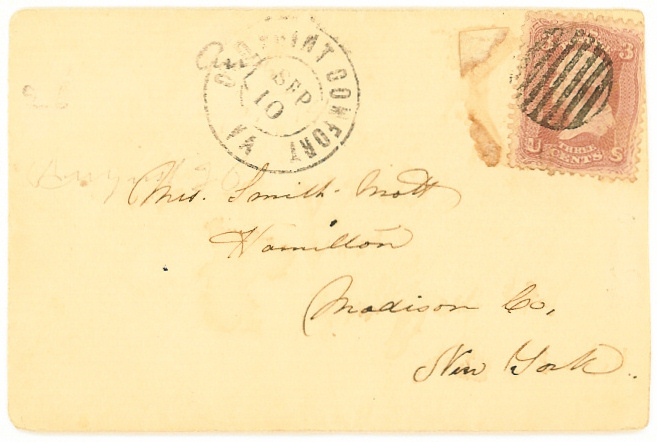 OLD POINT COMFORT
SEP
10
VA
3 3
U THREE S
CENTS
Mrs. Smith Mott
Hamilton
Madison Co,
New York.